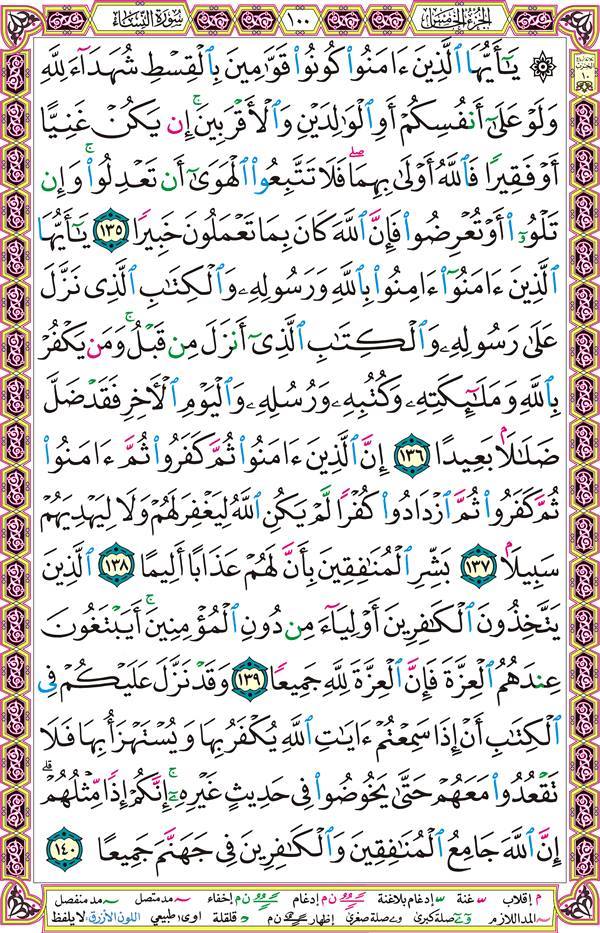 الجزء الخامس
١٠٠
سورة النساء
۞ يَـٰٓأَيُّهَا ٱلَّذِينَ ءَامَنُوا۟ كُونُوا۟ قَوَّٰمِينَ بِٱلْقِسْطِ شُهَدَآءَ لِلَّهِ
وَلَوْ عَلَىٰٓ أَنفُسِكُمْ أَوِ ٱلْوَٰلِدَيْنِ وَٱلْأَقْرَبِينَ ۚ إِن يَكُنْ غَنِيًّا
أَوْ فَقِيرًا فَٱللَّهُ أَوْلَىٰ بِهِمَا ۖ فَلَا تَتَّبِعُوا۟ ٱلْهَوَىٰٓ أَن تَعْدِلُوا۟ ۚ وَإِن
تَلْوُۥٓا۟ أَوْ تُعْرِضُوا۟ فَإِنَّ ٱللَّهَ كَانَ بِمَا تَعْمَلُونَ خَبِيرًا ١٣٥ يَـٰٓأَيُّهَا
ٱلَّذِينَ ءَامَنُوٓا۟ ءَامِنُوا۟ بِٱللَّهِ وَرَسُولِهِۦ وَٱلْكِتَـٰبِ ٱلَّذِى نَزَّلَ
عَلَىٰ رَسُولِهِۦ وَٱلْكِتَـٰبِ ٱلَّذِىٓ أَنزَلَ مِن قَبْلُ ۚ وَمَن يَكْفُرْ
بِٱللَّهِ وَمَلَـٰٓئِكَتِهِۦ وَكُتُبِهِۦ وَرُسُلِهِۦ وَٱلْيَوْمِ ٱلْـَٔاخِرِ فَقَدْ ضَلَّ
ضَلَـٰلًۢا بَعِيدًا ١٣٦ إِنَّ ٱلَّذِينَ ءَامَنُوا۟ ثُمَّ كَفَرُوا۟ ثُمَّ ءَامَنُوا۟
ثُمَّ كَفَرُوا۟ ثُمَّ ٱزْدَادُوا۟ كُفْرًا لَّمْ يَكُنِ ٱللَّهُ لِيَغْفِرَ لَهُمْ وَلَا لِيَهْدِيَهُمْ
سَبِيلًۢا ١٣٧ بَشِّرِ ٱلْمُنَـٰفِقِينَ بِأَنَّ لَهُمْ عَذَابًا أَلِيمًا ١٣٨ ٱلَّذِينَ
يَتَّخِذُونَ ٱلْكَـٰفِرِينَ أَوْلِيَآءَ مِن دُونِ ٱلْمُؤْمِنِينَ ۚ أَيَبْتَغُونَ
عِندَهُمُ ٱلْعِزَّةَ فَإِنَّ ٱلْعِزَّةَ لِلَّهِ جَمِيعًا ١٣٩ وَقَدْ نَزَّلَ عَلَيْكُمْ فِى
ٱلْكِتَـٰبِ أَنْ إِذَا سَمِعْتُمْ ءَايَـٰتِ ٱللَّهِ يُكْفَرُ بِهَا وَيُسْتَهْزَأُ بِهَا فَلَا
تَقْعُدُوا۟ مَعَهُمْ حَتَّىٰ يَخُوضُوا۟ فِى حَدِيثٍ غَيْرِهِۦٓ ۚ إِنَّكُمْ إِذًا مِّثْلُهُمْ ۗ
إِنَّ ٱللَّهَ جَامِعُ ٱلْمُنَـٰفِقِينَ وَٱلْكَـٰفِرِينَ فِى جَهَنَّمَ جَمِيعًا ١٤٠
م إقلاب س غنة إدغام بلاغنة ن م إدغام إخفاء مد متصل مد منفصل
المد اللازم صلة كبرى صلة صغرى إظهار ن م قلقلة اوى طبيعي اللون الأزرق لا يلفظ